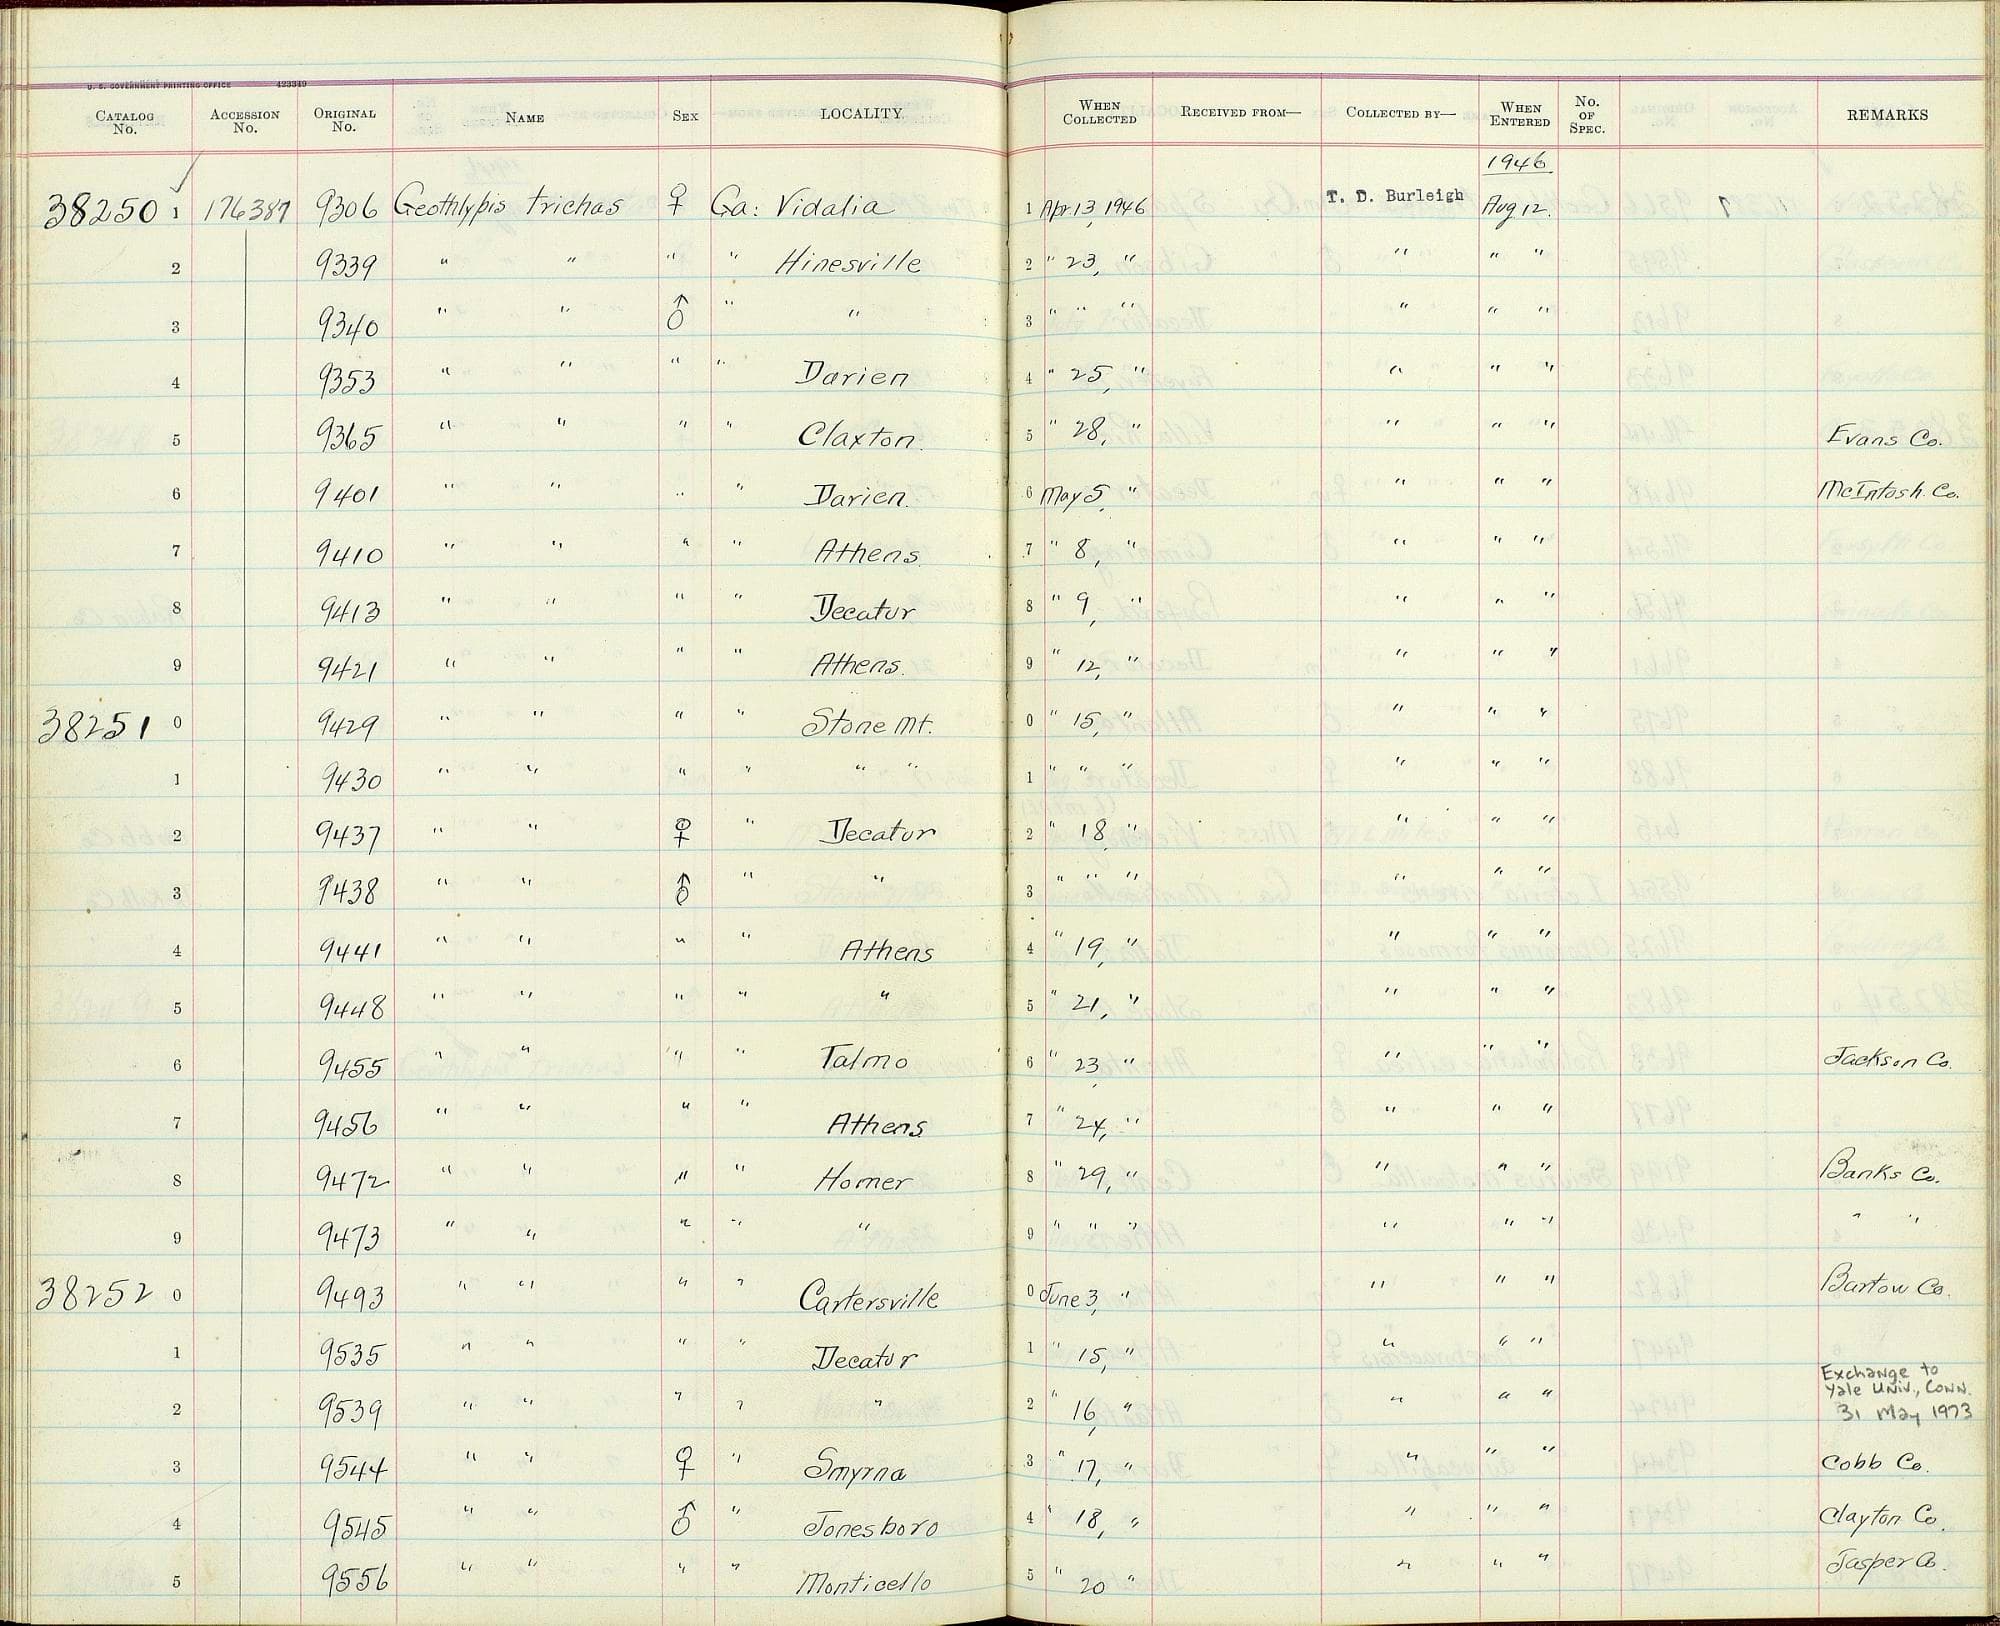 U. S. GOVERNMENT PRINTING OFFICE 423349
CATALOG No. ACCESSION No. ORIGINAL No. NAME SEX LOCALITY WHEN COLLECTED RECEIVED FROM— COLLECTED BY— WHEN ENTERED No. OF SPEC. REMARKS
1946
38250 1 176387 9306 Geothlypis trichas ♀ Ga: Vidalia 1 Apr. 13, 1946 T. D. Burleigh Aug 12.
2 9339 " " " " Hinesville 2 " 23, " " " "
3 9340 " " ♂ " " 3 " " " " " "
4 9353 " " " " Darien 4 " 25, " " " "
5 9365 " " " " Claxton. 5 " 28, " " " " Evans Co.
6 9401 " " " " Darien. 6 May 5, " " " " McIntosh. Co.
7 9410 " " " " Athens. 7 " 8, " " " "
8 9413 " " " " Decatur 8 " 9, " " " "
9 9421 " " " " Athens. 9 " 12, " " " "
38251 0 9429 " " " " Stone Mt. 0 " 15, " " " "
1 9430 " " " " " " 1 " " " " " "
2 9437 " " ♀ " Decatur 2 " 18 " " " "
3 9438 " " ♂ " " 3 " " " " " "
4 9441 " " " " Athens 4 " 19, " " " "
5 9448 " " " " " 5 " 21, " " " "
6 9455 " " " " Talmo 6 " 23, " " " " Jackson Co.
7 9456 " " " " Athens 7 " 24, " " " "
8 9472 " " " " Homer 8 " 29, " " " " Banks Co.
9 9473 " " " " " 9 " " " " " " " "
38252 0 9493 " " " " Cartersville 0 June 3, " " " " Bartow Co.
1 9535 " " " " Decatur 1 " 15, " " " "
2 9539 " " " " " 2 " 16, " " " " Exchange to
Yale Univ., Conn.
31 May 1973
3 9544 " " ♀ " Smyrna 3 " 17, " " " " Cobb Co.
4 9545 " " ♂ " Jonesboro 4 " 18, " " " " Clayton Co.
5 9556 " " " " Monticello 5 " 20 " " " " Jasper Co.